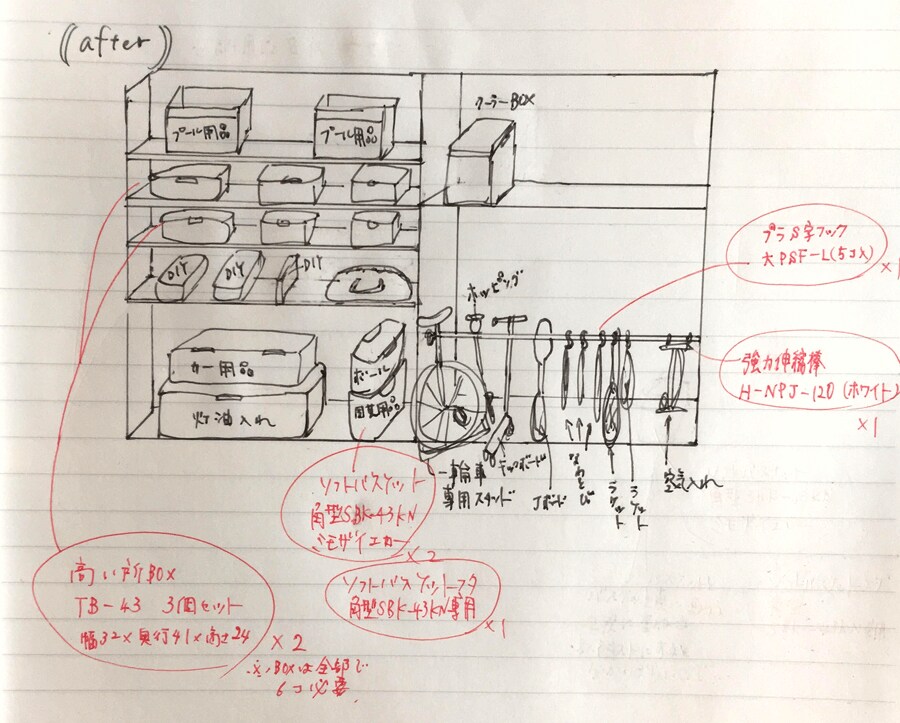 ((after))
クーラーBOX
プール用品
プール用品
DIY
DIY
DIY
ホッピング
プラS字フック
大PSF-L(5コ入)
×1
強力伸縮棒
H-NPJ-120(ホワイト)
×1
カー用品
灯油入れ
ボール
園芸用品
一輪車
専用スタンド
キックボード
Jボード
なわとび
ラケット
ラケット
空気入れ
ソフトバスケット
角型SBK-43KN
×2
ソフトバスケットフタ
角型SBK-43KN専用
×1
高い所BOX
TB-43 3個セット
幅32×奥行41×高さ24
×2
※BOXは全部で
6コ必要